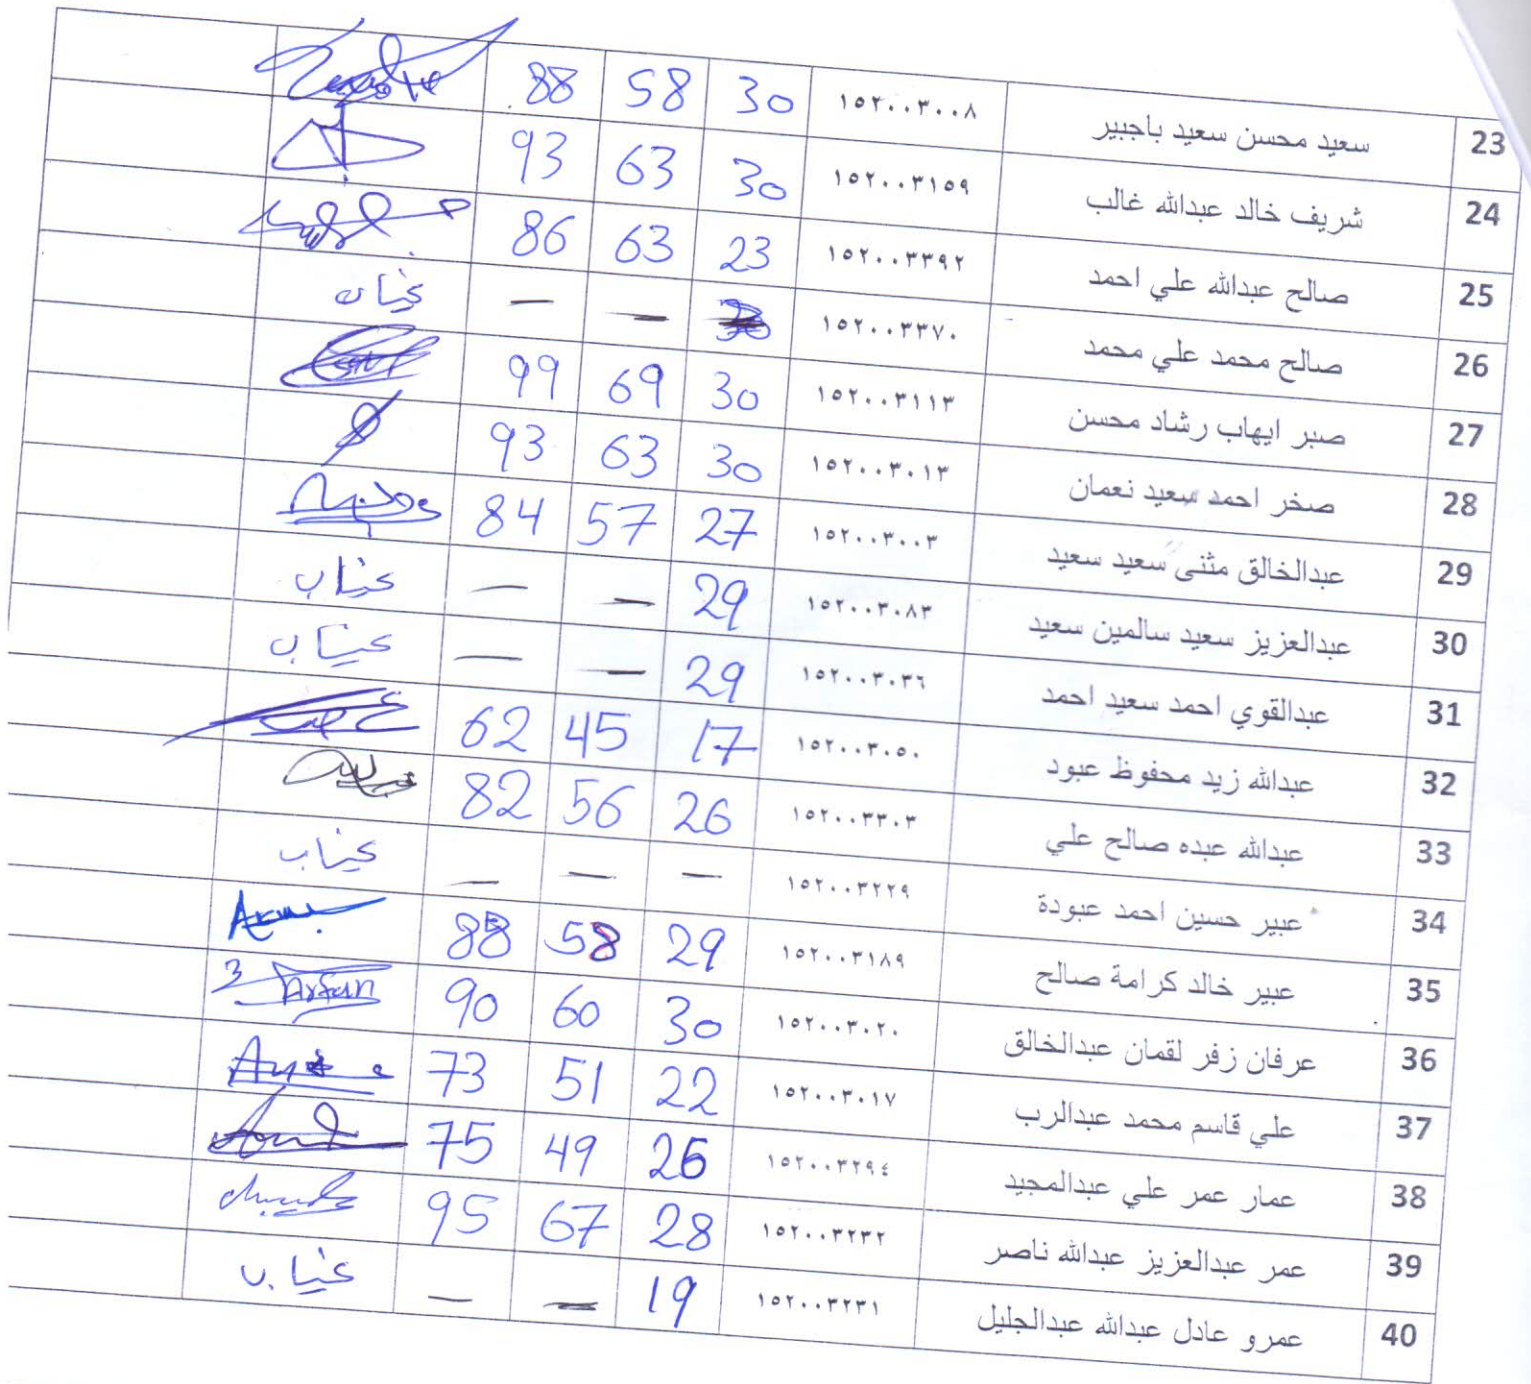 23 سعيد محسن سعيد باجبير ١٥٢٠٠٣٠٠٨ 30 58 88
24 شريف خالد عبدالله غالب ١٥٢٠٠٣١٥٩ 30 63 93
25 صالح عبدالله علي احمد ١٥٢٠٠٣٣٩٢ 23 63 86
26 صالح محمد علي محمد ١٥٢٠٠٣٣٧٠ — — غياب
27 صبر ايهاب رشاد محسن ١٥٢٠٠٣١١٣ 30 69 99
28 صخر احمد سعيد نعمان ١٥٢٠٠٣٠١٣ 30 63 93
29 عبدالخالق مثنى سعيد سعيد ١٥٢٠٠٣٠٠٣ 27 57 84
30 عبدالعزيز سعيد سالمين سعيد ١٥٢٠٠٣٠٨٣ 29 — — غياب
31 عبدالقوي احمد سعيد احمد ١٥٢٠٠٣٠٣٦ 29 — — غياب
32 عبدالله زيد محفوظ عبود ١٥٢٠٠٣٠٥٠ 17 45 62
33 عبدالله عبده صالح علي ١٥٢٠٠٣٣٠٣ 26 56 82
34 عبير حسين احمد عبودة ١٥٢٠٠٣٢٢٩ — — — غياب
35 عبير خالد كرامة صالح ١٥٢٠٠٣١٨٩ 29 58
36 عرفان زفر لقمان عبدالخالق ١٥٢٠٠٣٠٢٠ 30 60 90 Arfan
37 علي قاسم محمد عبدالرب ١٥٢٠٠٣٠١٧ 22 51 73
38 عمار عمر علي عبدالمجيد ١٥٢٠٠٣٢٩٤ 26 49 75
39 عمر عبدالعزيز عبدالله ناصر ١٥٢٠٠٣٢٣٢ 28 67 95
40 عمرو عادل عبدالله عبدالجليل ١٥٢٠٠٣٢٣١ 19 — — غياب